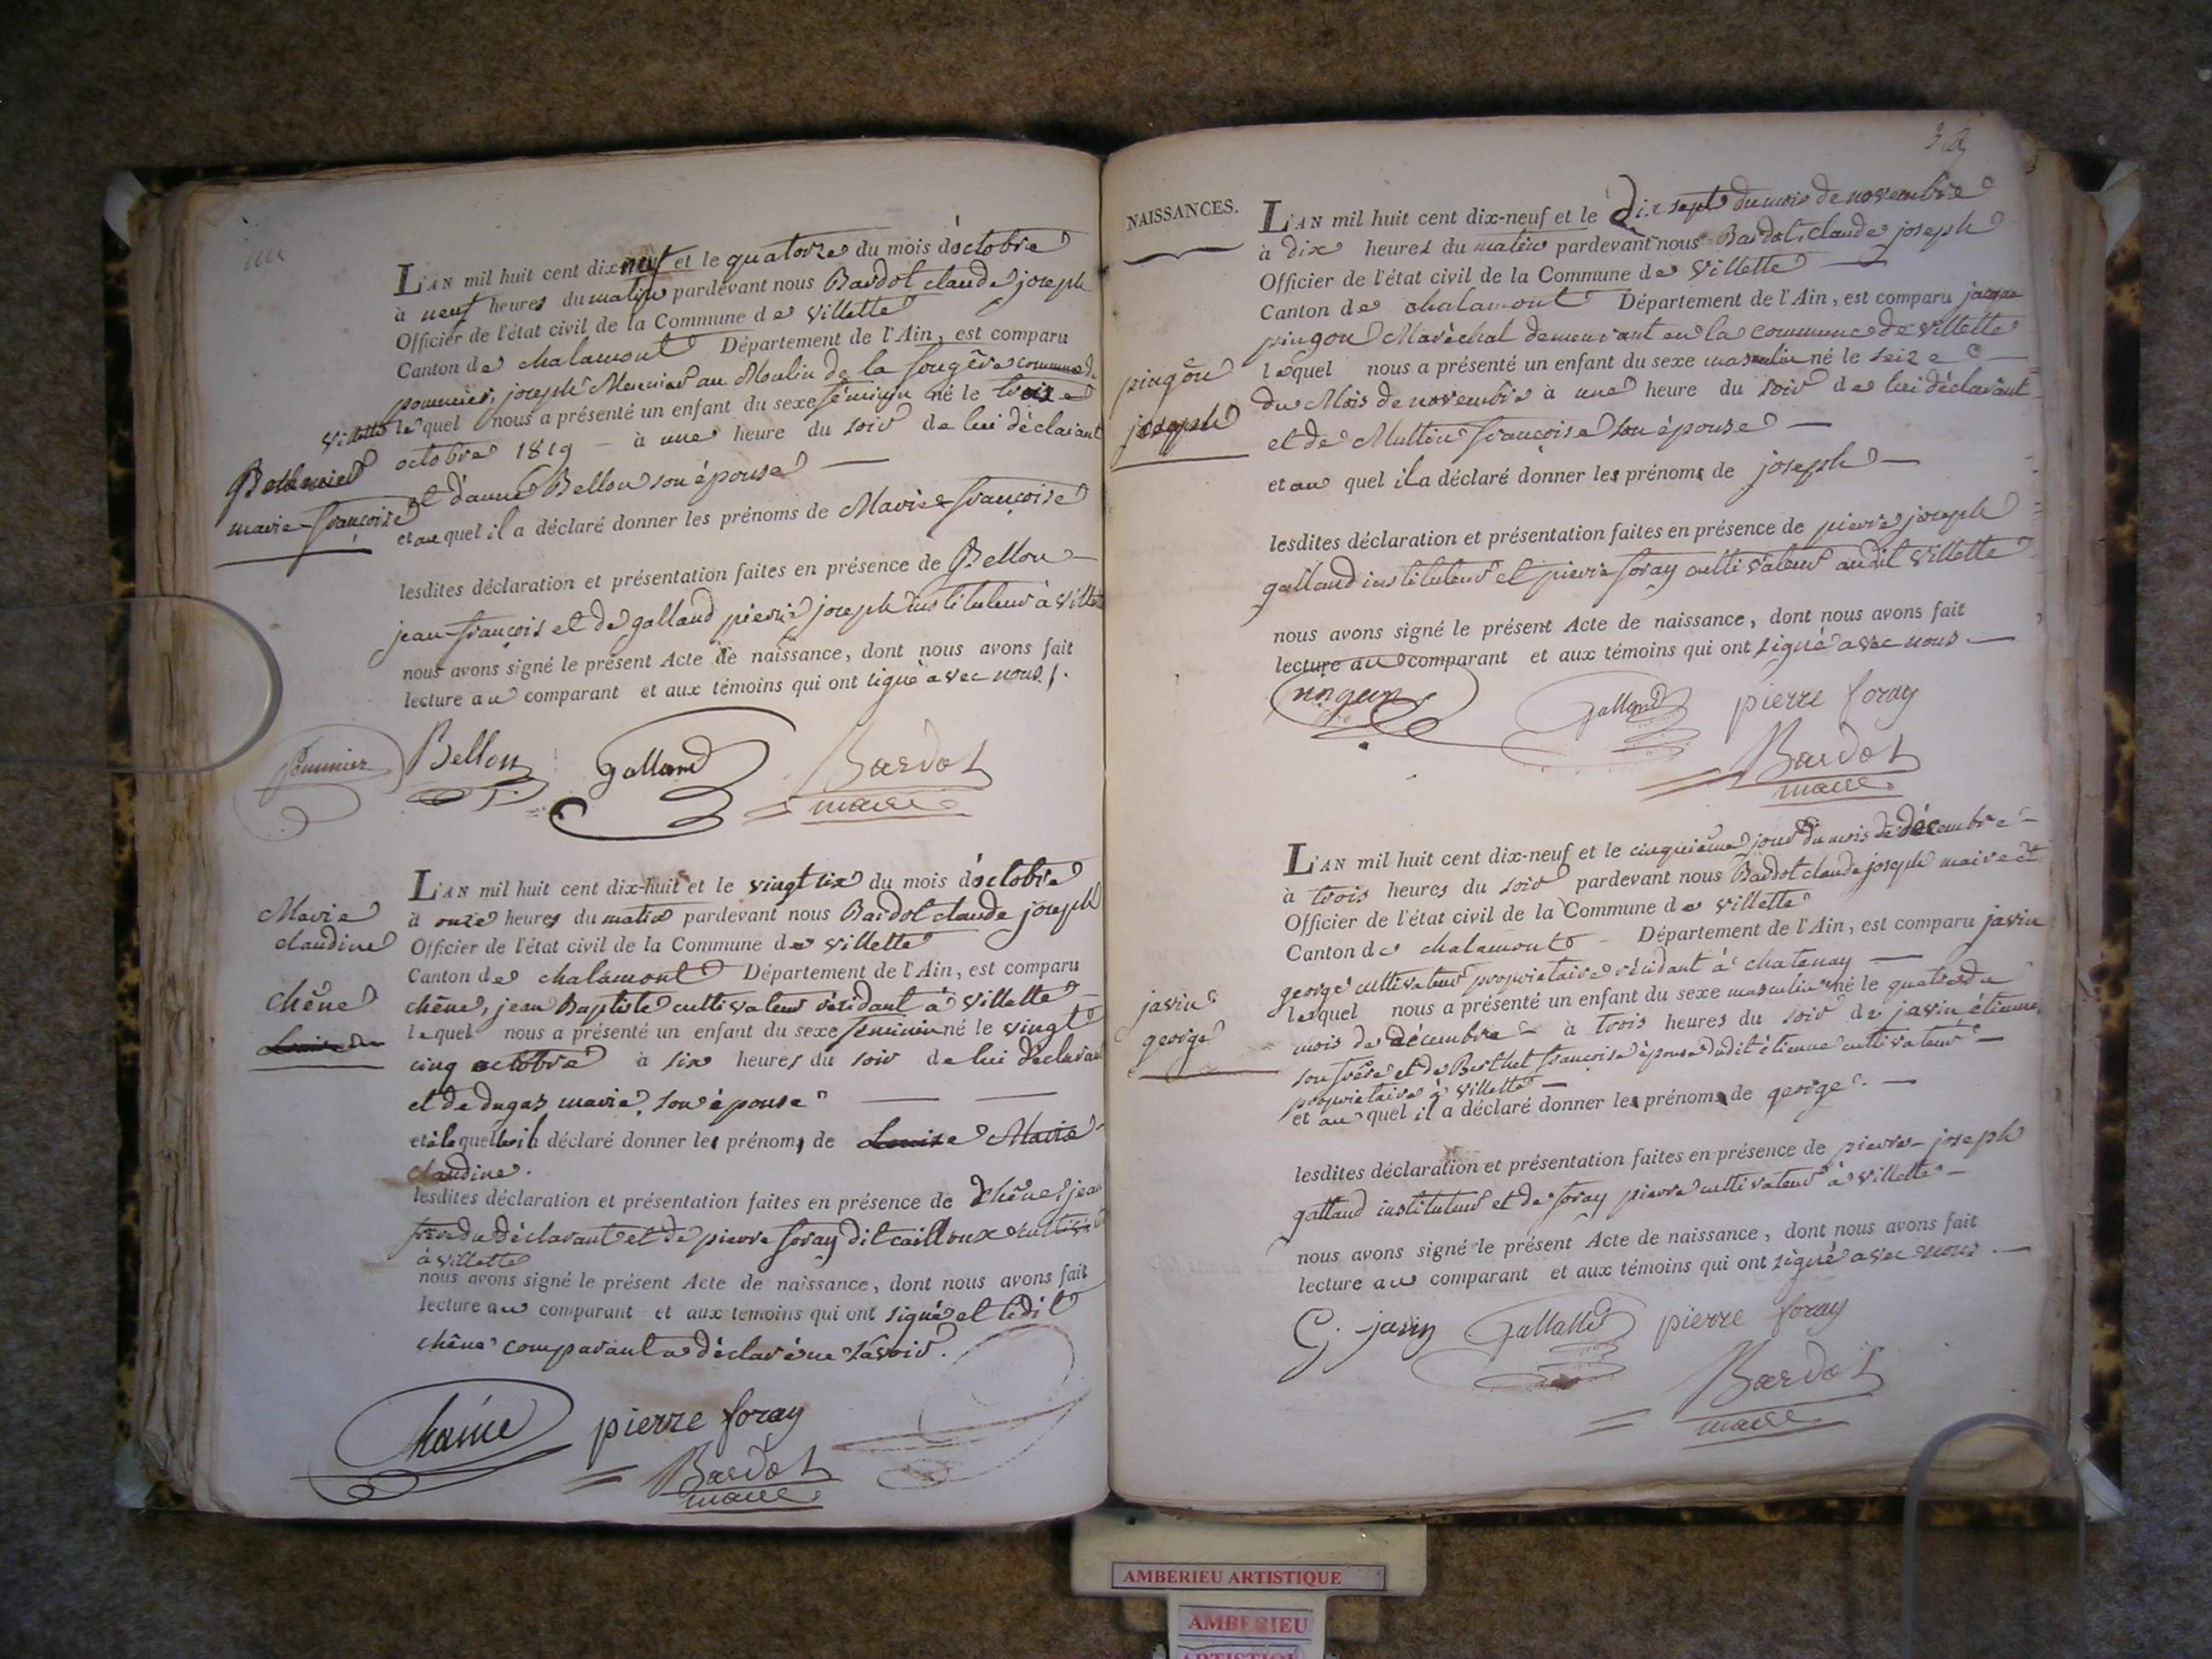 L'AN mil huit cent dix neuf et le quatorze du mois d'octobre
à neuf heures du matin pardevant nous Bardot claude joseph
Officier de l'état civil de la Commune de villette
Canton de chalamont Département de l'Ain, est comparu
pommier, joseph Meunier au Moulin de la fougère commune de
villette lequel nous a présenté un enfant du sexe féminin né le treize
octobre 1819 — à une heure du soir de lui déclarant
et d'anne Bellon son épouse —
et au quel il a déclaré donner les prénoms de Marie françoise
marie françoise
lesdites déclaration et présentation faites en présence de Bellon
jean françois et de galland pierre joseph instituteur à villette
nous avons signé le présent Acte de naissance, dont nous avons fait
lecture au comparant et aux témoins qui ont signé avec nous.
Pommier Bellon Galland Bardot
maire
Marie
claudine
chêne
L'AN mil huit cent dix-huit et le vingt six du mois d'octobre
à onze heures du matin pardevant nous Bardot claude joseph
Officier de l'état civil de la Commune de villette
Canton de chalamont Département de l'Ain, est comparu
chêne, jean Baptiste cultivateur résidant à villette —
lequel nous a présenté un enfant du sexe féminin né le vingt
cinq octobre à six heures du soir de lui déclarant
et de dugas marie, son épouse — —
et à laquelle il a déclaré donner les prénoms de Louise Marie
claudine.
lesdites déclaration et présentation faites en présence de chêne, jean
frère du déclarant et de pierre foray dit cailloux
à villette
nous avons signé le présent Acte de naissance, dont nous avons fait
lecture au comparant et aux temoins qui ont signé et ledit
chêne comparant a déclaré ne savoir.
Chaine pierre foray
Bardot
maire
NAISSANCES.
L'AN mil huit cent dix-neuf et le Dix sept du mois de novembre
à dix heures du matin pardevant nous Bardot, claude joseph
Officier de l'état civil de la Commune de villette —
Canton de chalamont Département de l'Ain, est comparu jacque
pingon Maréchal demeurant en la commune de villette
lequel nous a présenté un enfant du sexe masculin né le seize —
du Mois de novembre à une heure du soir de lui déclarant
et de Muttin françoise son épouse —
et au quel il a déclaré donner les prénoms de joseph —
pingon
joseph
lesdites déclaration et présentation faites en présence de pierre joseph
galland instituteur et pierre foray cultivateur audit villette
nous avons signé le présent Acte de naissance, dont nous avons fait
lecture au comparant et aux témoins qui ont signé avec nous —
Galland pierre foray
Bardot
maire
L'AN mil huit cent dix-neuf et le cinquième jour du mois de décembre —
à trois heures du soir pardevant nous Bardot claude joseph maire et
Officier de l'état civil de la Commune de villette
Canton de chalamont — Département de l'Ain, est comparu javin
george cultivateur propriétaire résidant à chatenay —
lequel nous a présenté un enfant du sexe masculin né le quatre du
mois de décembre — à trois heures du soir de javin étienne,
son frère et de Berthet françoise épouse dudit étienne cultivateur —
propriétaire à villette —
et au quel il a déclaré donner les prénoms de george. —
javin
george
lesdites déclaration et présentation faites en présence de pierre joseph
galland instituteur et de foray pierre cultivateur à villette —
nous avons signé le présent Acte de naissance, dont nous avons fait
lecture au comparant et aux témoins qui ont signé avec nous —
G. javin Galland pierre foray
Bardot
maire
AMBERIEU ARTISTIQUE
AMBERIEU
ARTISTIQUE